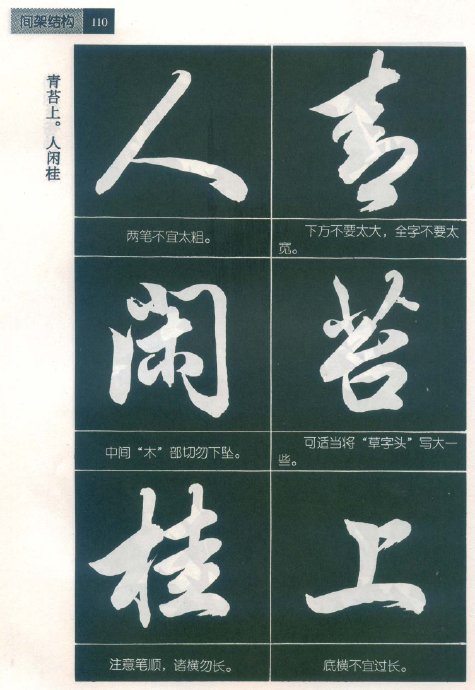 间架结构 110
青苔上。人闲桂
青
下方不要太大，全字不要太
宽。
苔
可适当将“草字头”写大一
些。
上
底横不宜过长。
人
两笔不宜太粗。
闲
中间“木”部切勿下坠。
桂
注意笔顺，诸横勿长。